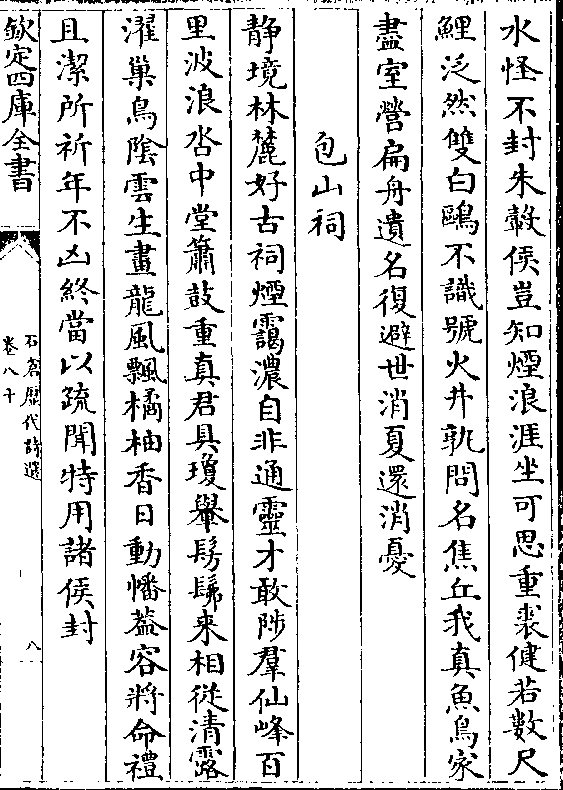 水怪不封朱轂侯豈知煙浪涯坐可思重裘健若數尺
鯉泛然雙白鷗不識號火井孰問名焦丘我真魚鳥家
盡室營扁舟遺名復避世消夏還消憂
包山祠
静境林麓好古祠煙靄濃自非通靈才敢陟羣仙峰百
里波浪沓中堂簫鼓重真君具瓊轝髣髴来相從清露
濯巢鳥陰雲生畫龍風飄橘柚香日動幡葢容將命禮
且潔所祈年不凶終當以疏聞特用諸侯封
欽定四庫全書
石倉歷代詩選
卷八十
八